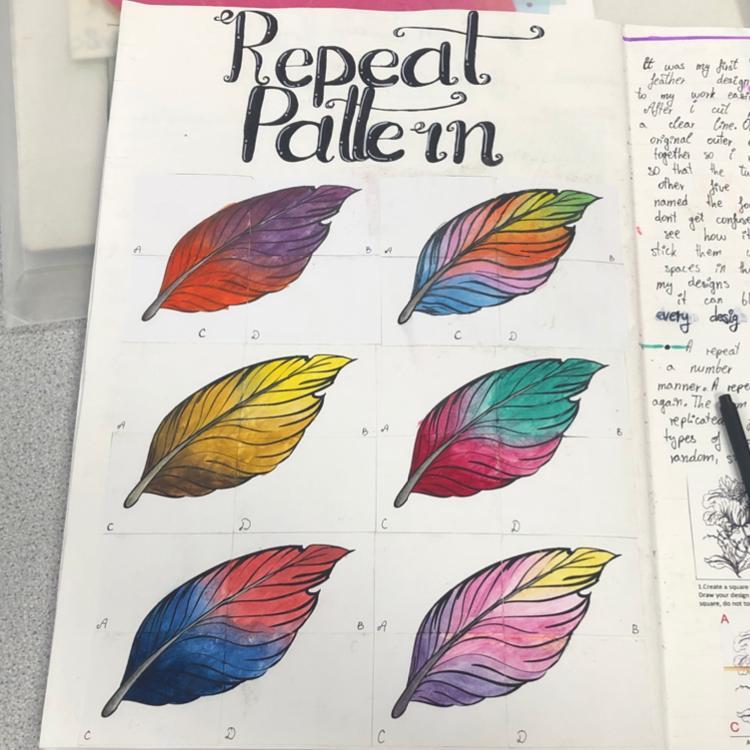 Repeat
Pattern
A
B
C
D
B
C
D
A
B
C
D
A
B
C
D
A
B
C
D
A
B
C
D
It was my first
feather design
to my work easi
After i cut
a clear line.
original outer
together so i
so that the tw
other five
named the fo
dont get confuse
see how it
stick them
spaces in th
my designs
it can bl
every desig
A repeat
a number
manner. A repe
again. The
replicated
types of
random, s
1.Create a square
Draw your design
square, do not to
A
C